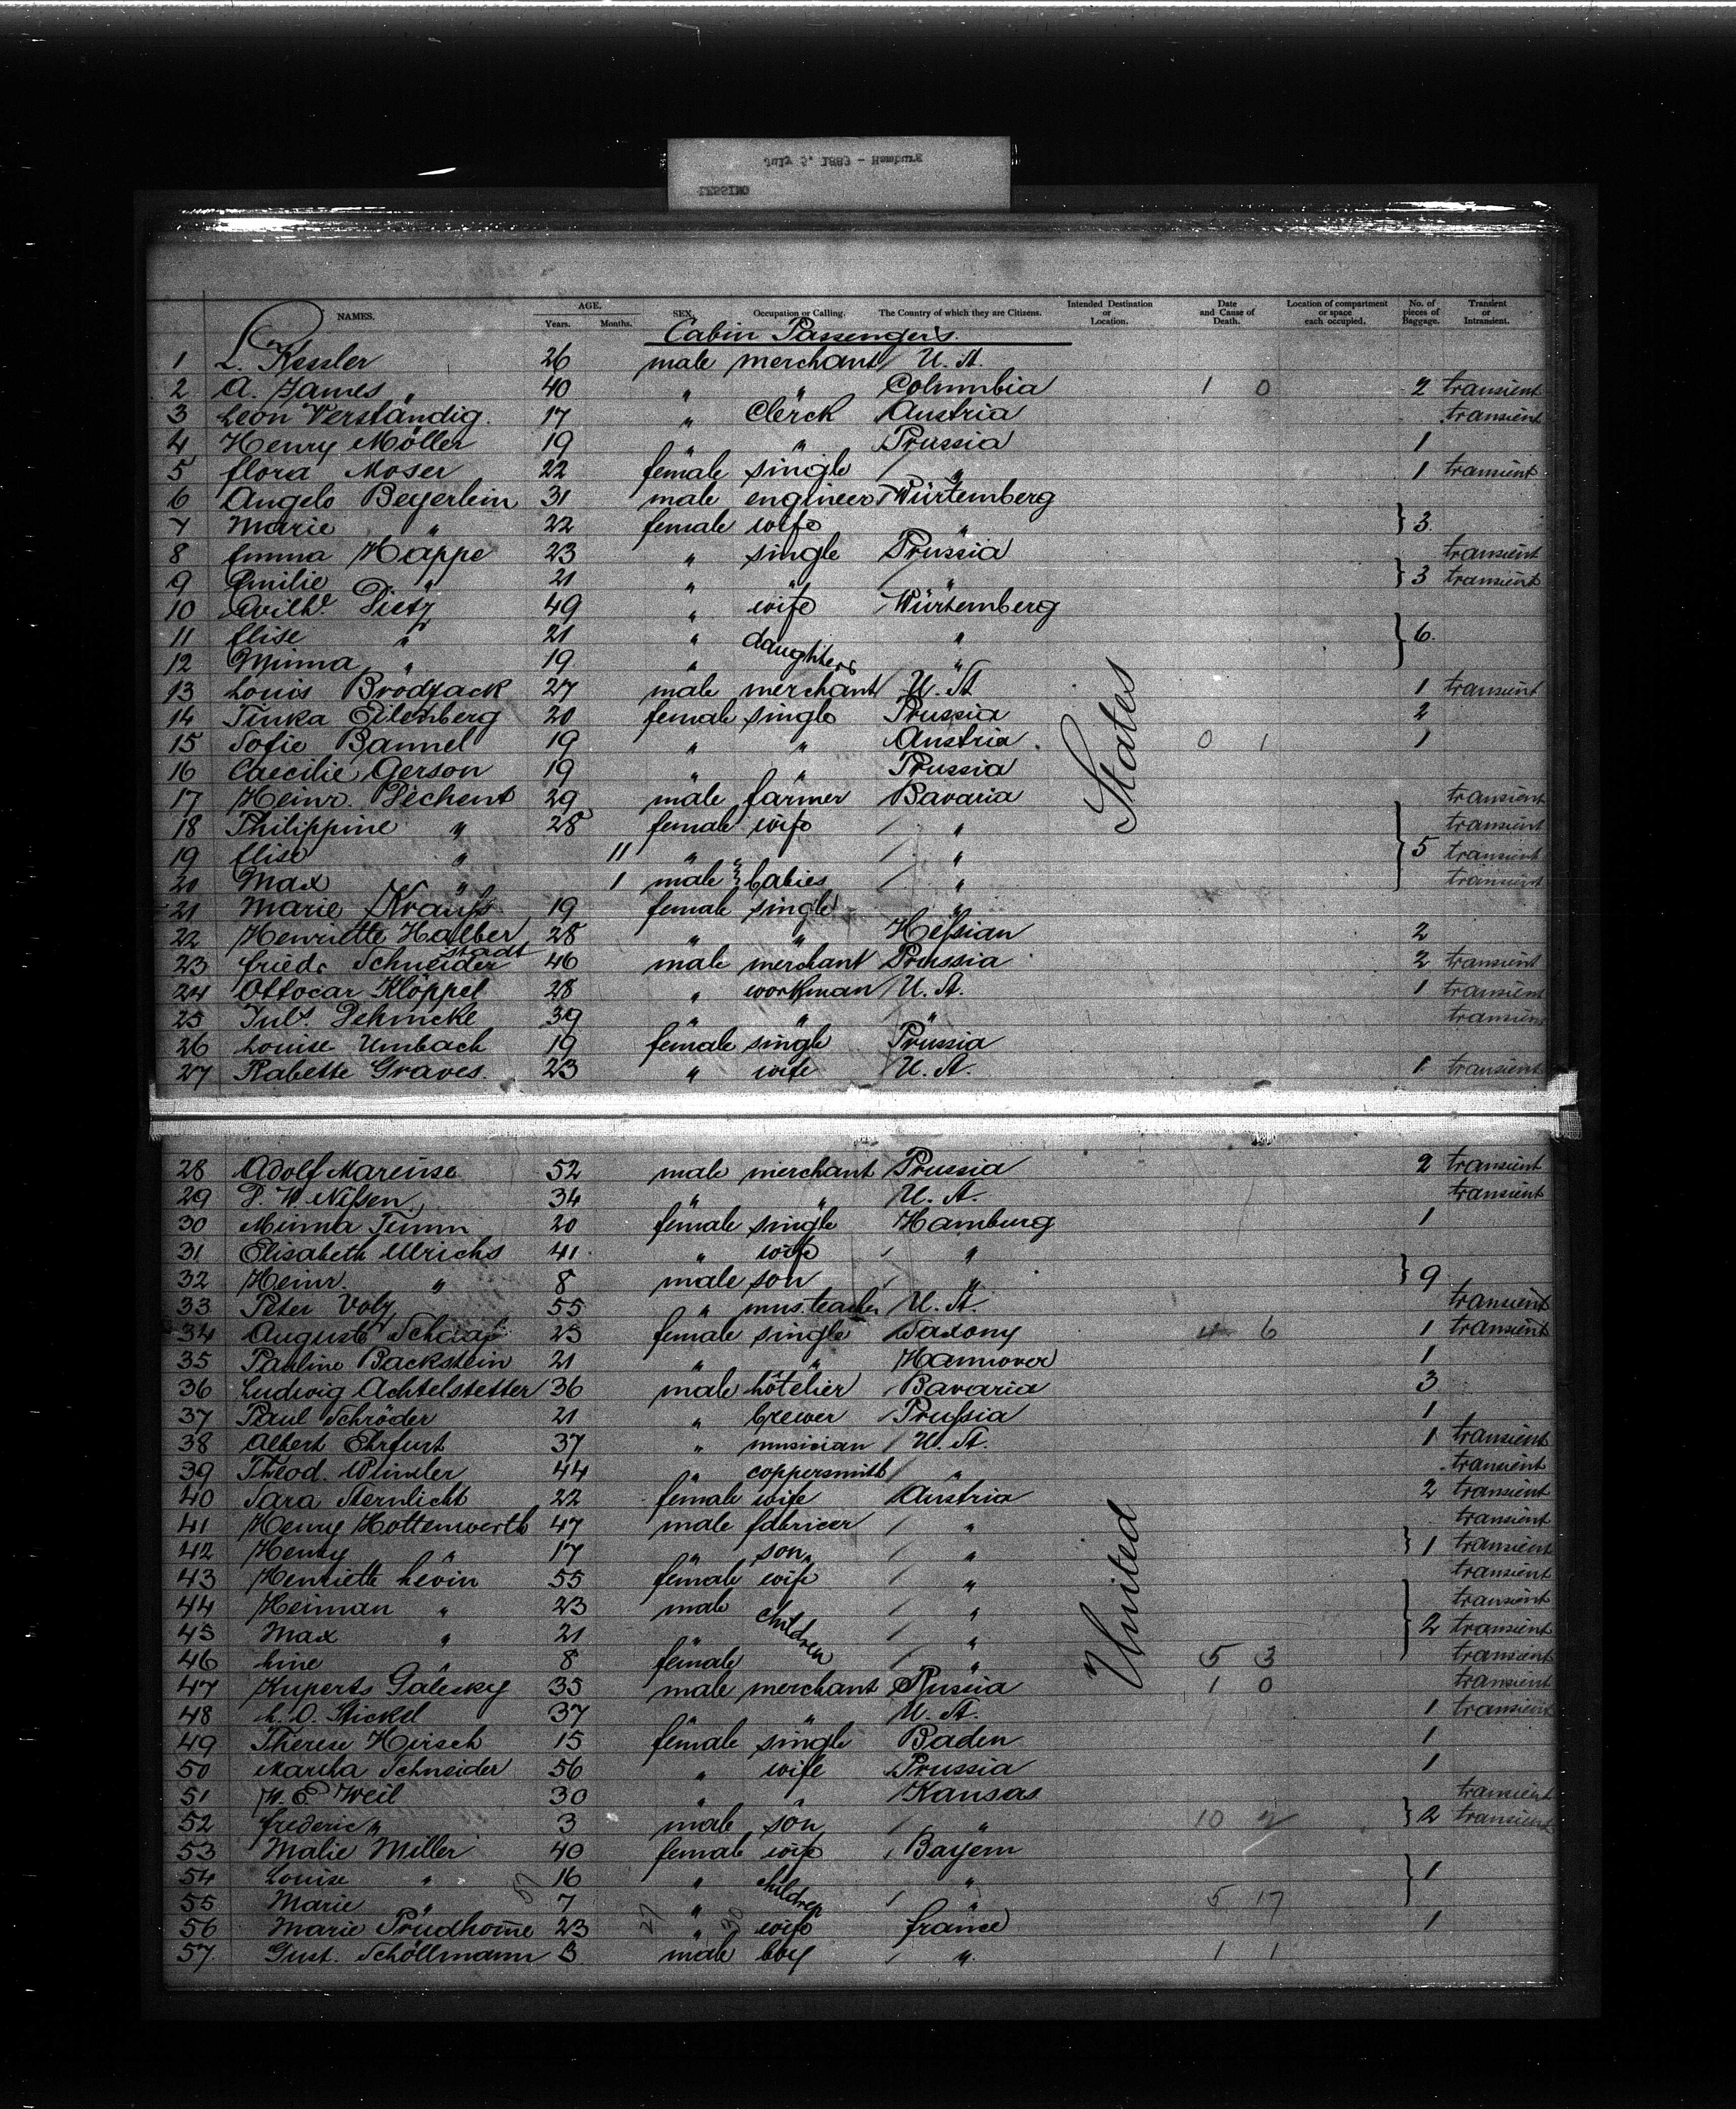 July 3, 1883 - Hamburg
LESSING
NAMES. AGE. Years. Months. SEX. Occupation or Calling. The Country of which they are Citizens. Intended Destination or Location. Date and Cause of Death. Location of compartment or space each occupied. No. of pieces of Baggage. Transient or Intransient.
Cabin Passengers.
1 L. Kessler 26 male merchant U. St.
2 A. James 40 " " Columbia 1 0 2 transient
3 Leon Verständig. 17 " Clerck Austria transient
4 Henry Möller 19 " " Prussia 1
5 Flora Moser 22 female single " 1 transient
6 Angelo Beyerlein 31 male engineer Würtemberg
7 Marie " 22 female wife " } 3.
8 Emma Happe 23 " single Prussia transient
9 Emilie " 21 " " " } 3 transient
10 Wilh. Dietz 49 " wife Würtemberg
11 Elise " 21 " daughters " } 6.
12 Minna " 19 " "
13 Louis Brodzack 27 male merchant U. St 1 transient
14 Tinka Eilenberg 20 female single Prussia 2
15 Sofie Bannel 19 " " Austria. 0 1 1
16 Caecilie Gerson 19 " " Prussia
17 Heinr. Dechent 29 male farmer Bavaria transient
18 Philippine " 28 female wife " transient
19 Elise " 11 " " " } 5 transient
20 Max " 1 male babies " transient
21 Marie Krauß 19 female single "
22 Henriette Halberstadt 28 " " Heßian 2
23 Friedr Schneider 46 male merchant Prussia 2 transient
24 Ottocar Klöppel 28 " workman U. St. 1 transient
25 Juls. Dehmcke 39 " " " transient
26 Louise Umbach 19 female single Prussia
27 Babette Graves. 23 " wife U. St. 1 transient
States
28 Adolf Mareuse 52 male merchant Prussia 2 transient
29 P. W. Nißen 34 " " U. St. transient
30 Minna Timm 20 female single Hamburg 1
31 Elisabeth Ulrichs 41 " wife "
32 Heinr. " 8 male son " } 9
33 Peter Volz 55 " mus. teacher U. St. transient
34 Auguste Schaaf 23 female single Saxony 6 1 transient
35 Pauline Backstein 21 " " Hannover 1
36 Ludwig Achtelstetter 36 male hôtelier Bavaria 3
37 Paul Schröder 21 " brewer Prußia 1
38 Albert Ehrfurt 37 " musician U. St. 1 transient
39 Theod. 44 " coppersmith " transient
40 Sara Sternlicht 22 female wife Austria 2 transient
41 Henry Hottenwerth 47 male fabricer " transient
42 Henry " 17 " son " } 1 transient
43 Henriette Levin 55 female wife " transient
44 Heiman " 23 male children " transient
45 Max " 21 " } 2 transient
46 Line " 8 female " 5 3 transient
47 Kuperts Galesky 35 male merchant Russia 1 0 transient
48 L. O. Stickel 37 " U. St. 1 transient
49 Therese Hirsch 15 female single Baden 1
50 Martha Schneider 56 " wife Prussia 1
51 W. E. Weil 30 " " Kansas transient
52 Frederic " 3 male son " 10 2 } 2 transient
53 Malie Miller 40 female wife Bayern
54 Louise " 16 " children " } 1
55 Marie " 7 " " 5 17
56 Marie Prudhome 23 " wife France 1
57. Gust. Schöllmann 3 male boy " 1 1
57 27 30
United